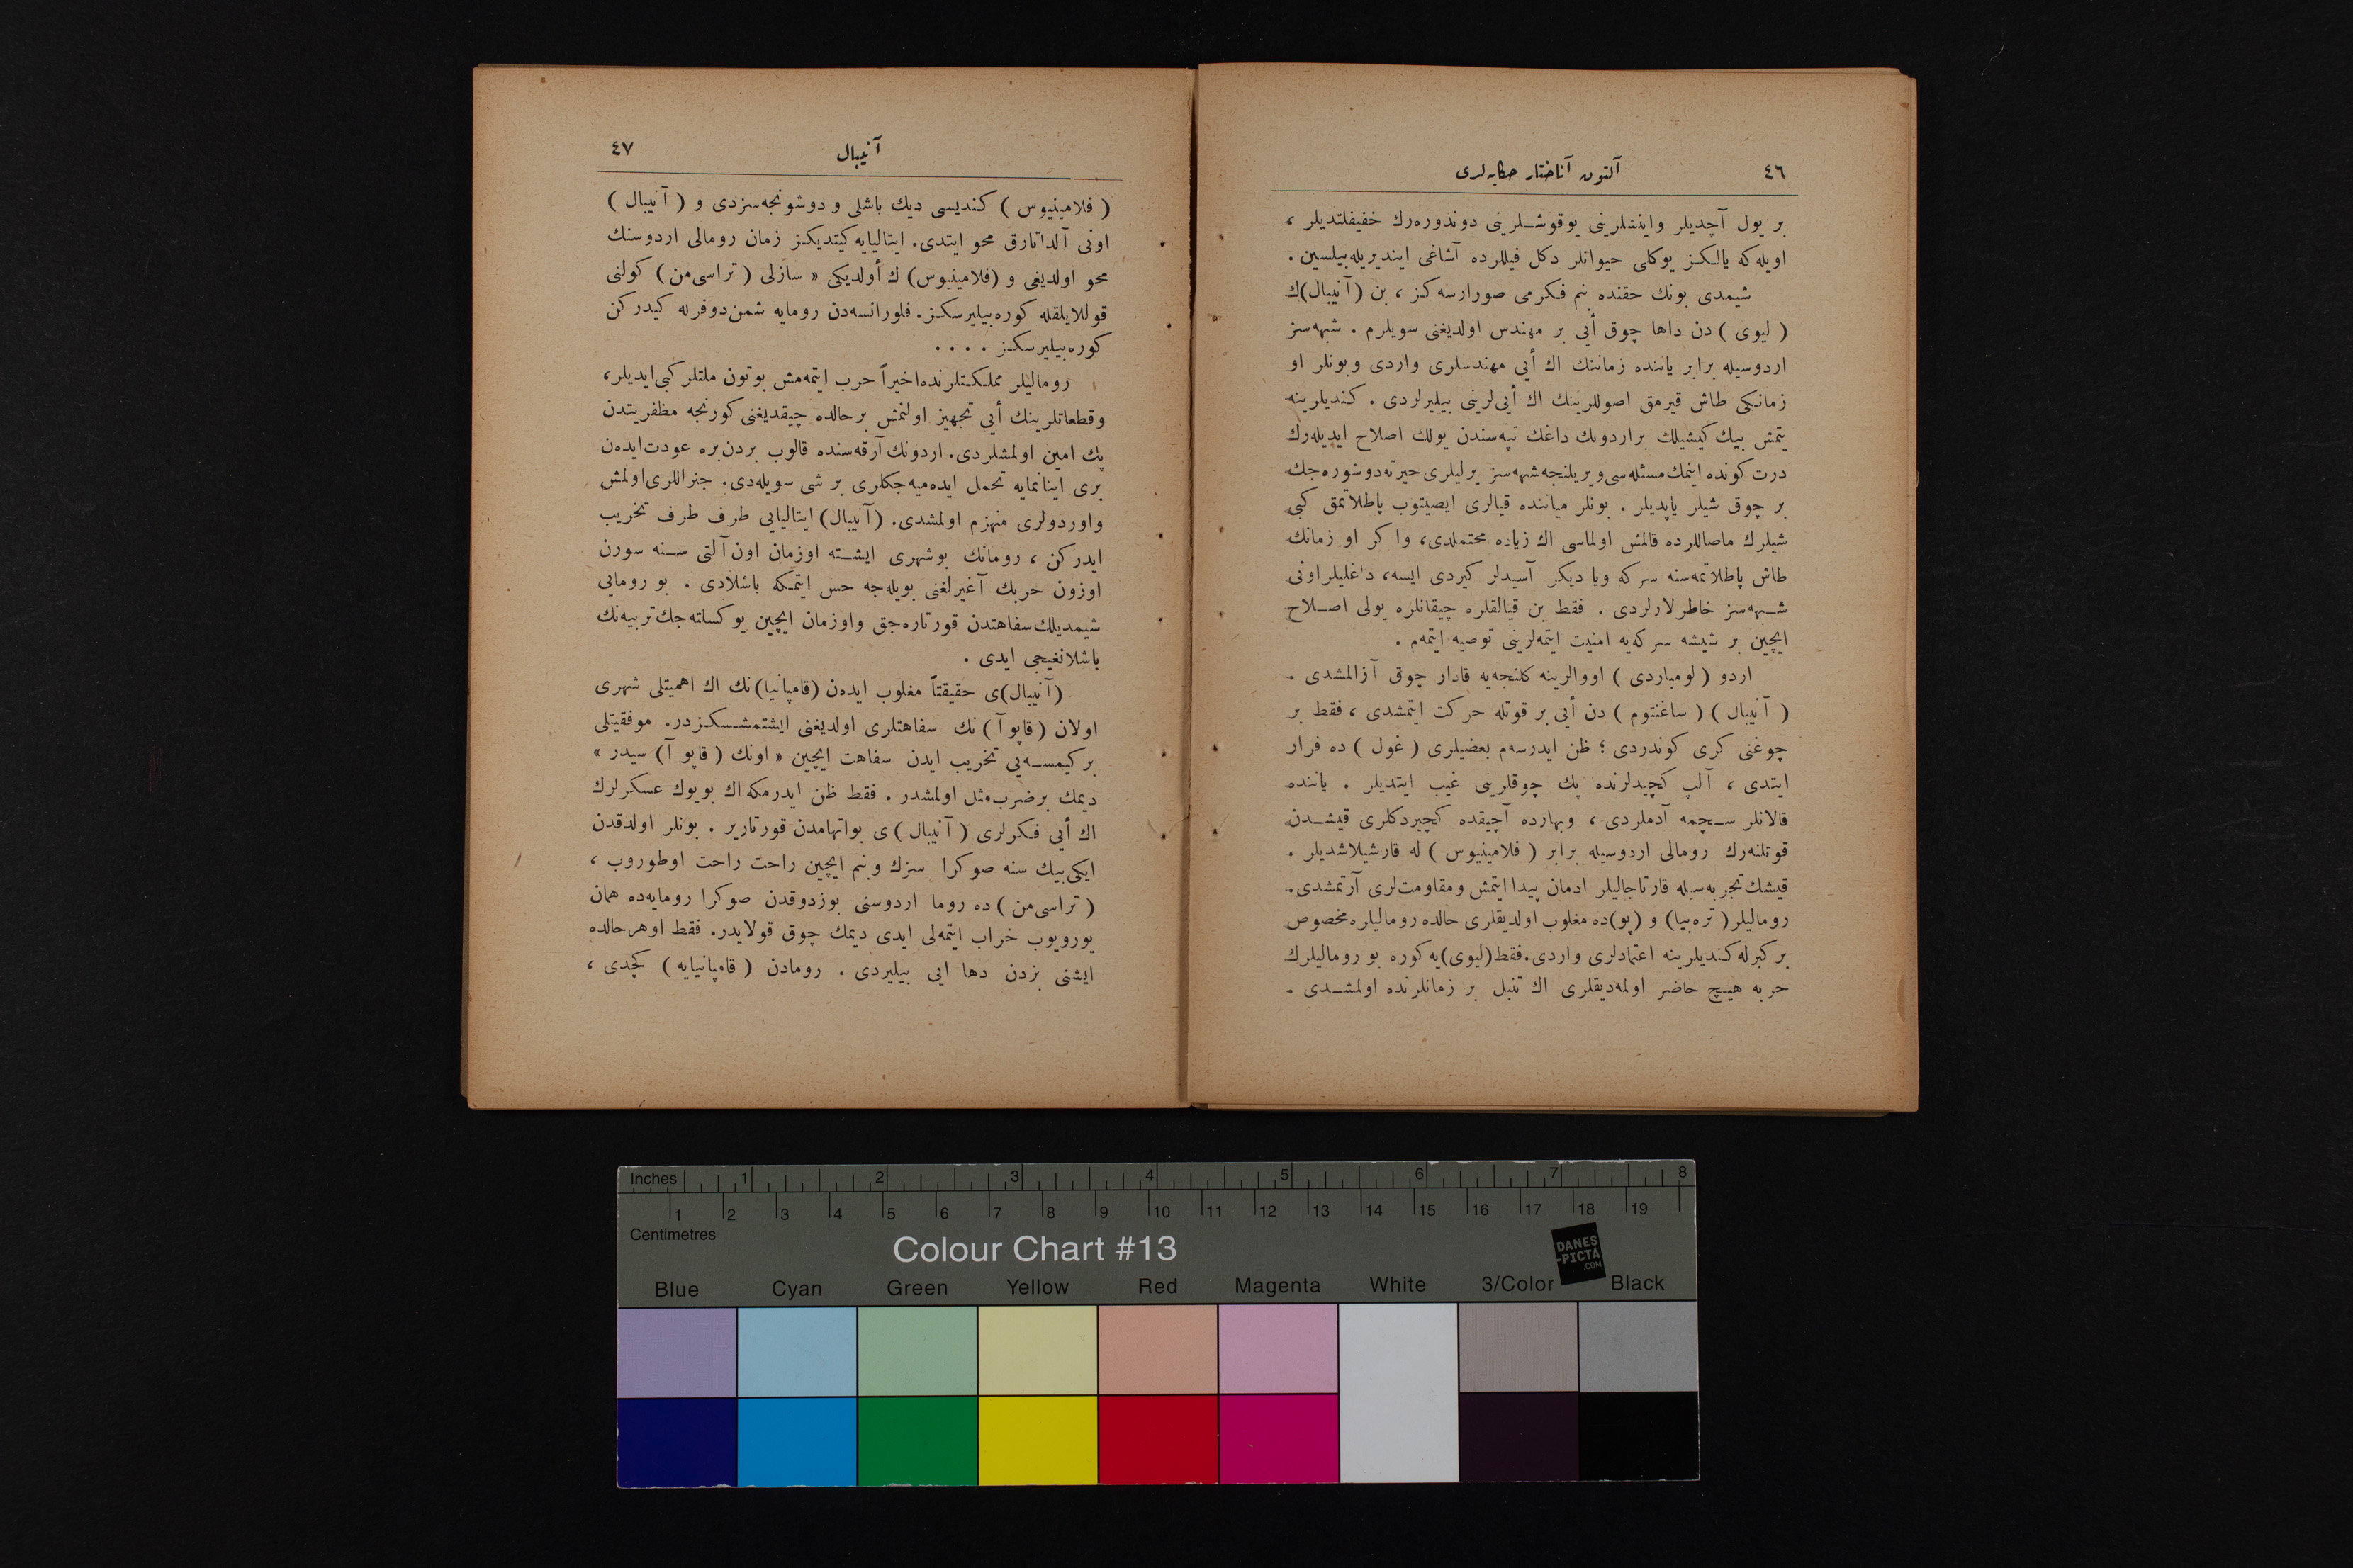 ٤٦ آلتون آناختار حكايه‌لرى
بر يول آچديلر واينشلرينى يوقوشلرينى دوندوره‌رك خفيفلتديلر ،
اويله‌كه يالكز يوكلى حيوانلر دكل فيللرده آشاغى اينديريله‌بيلسين .
شيمدى بونك حقنده بنم فكرمى صورارسه‌كز ، بن (آنيبال)ك
( ليوى ) دن داها چوق أيى بر مهندس اولديغنى سويلرم . شبهه‌سز
اردوسيله برابر ياننده زماننك اك أيى مهندسلرى واردى وبونلر او
زمانكى طاش قيرمق اصوللرينك اك أيى‌لرينى بيليرلردى . كنديلرينه
يتمش بيك كيشيلك براردونك داغك تپه‌سندن يولك اصلاح ايديله‌رك
درت كونده اينمك مسئله‌سى ويريلنجه شبهه‌سز يرليلرى حيرته‌دوشوره‌جك
بر چوق شيلر ياپديلر . بونلر مياننده قيالرى ايصيتوب پاطلاتمق كبى
شيلرك ماصاللرده قالمش اولماسى اك زياده محتملدى، وا كر او زمانك
طاش پاطلاتمه‌سنه سركه ويا ديكر آسيدلر كيردى ايسه، داغليلراونى
شبهه‌سز خاطرلارلردى . فقط بن قيالقلره چيقانلره يولى اصلاح
ايچين بر شيشه سركه‌يه امنيت ايتمه‌لرينى توصيه ايتمه‌م .
اردو ( لومباردى ) اووالرينه كلنجه‌يه قادار چوق آزالمشدى .
( آنيبال ) ( ساغنتوم ) دن أيى بر قوتله حركت ايتمشدى ، فقط بر
چوغنى كرى كوندردى ؛ ظن ايدرسه‌م بعضيلرى ( غول ) ده فرار
ايتدى ، آلپ كچيدلرنده پك چوقلرينى غيب ايتديلر . ياننده
قالانلر سچمه آدملردى ، وبهارده آچيقده كچيردكلرى قيشدن
قوتلنه‌رك رومالى اردوسيله برابر ( فلامينيوس ) له قارشيلاشديلر .
قيشك تجربه‌سيله قارتاجاليلر ادمان پيدا ايتمش ومقاومت‌لرى آرتمشدى.
روماليلر( تره‌بيا) و (پو)ده مغلوب اولديقلرى حالده روماليلره‌مخصوص
بركبرله كنديلرينه اعتمادلرى واردى.فقط(ليوى)يه كوره بو روماليلرك
حربه هيچ حاضر اولمه‌ديقلرى اك تنبل بر زمانلرنده اولمشدى .
آنيبال ٤٧
( فلامينيوس ) كنديسى ديك باشلى و دوشونجه‌سزدى و ( آنيبال )
اونى آلداتارق محو ايتدى. ايتاليايه كيتديكز زمان رومالى اردوسنك
محو اولديغى و (فلامينيوس) ك أولديكى « سازلى ( تراسى‌من ) كولنى
قوللايلقله كوره‌بيليرسكز. فلورانسه‌دن رومايه شمن‌دوفرله كيدركن
كوره‌بيليرسكز ....
روماليلر مملكتلرنده‌اخيراً حرب ايتمه‌مش بوتون ملتلركبى‌ايديلر،
وقطعاتلرينك أيى تجهيز اولنمش برحالده چيقديغنى كورنجه مظفريتدن
پك امين اولمشلردى. اردونك آرقه‌سنده قالوب بردن‌بره عودت‌ايده‌ن
برى اينانمايه تحمل ايده‌ميه‌جكلرى بر شى سويله‌دى. جنراللرى‌اولمش
واوردولرى منهزم اولمشدى. (آنيبال) ايتاليايى طرف طرف تخريب
ايدركن ، رومانك بوشهرى ايشته اوزمان اون‌آلتى سنه سورن
اوزون حربك آغيرلغنى بويله‌جه حس ايتمكه باشلادى . بو رومايى
شيمديلك‌سفاهتدن قورتاره‌جق واوزمان ايچين يوكسلته‌جك‌تربيه‌نك
باشلانغيجى ايدى .
(آنيبال)ى حقيقتاً مغلوب ايده‌ن (قامپانيا)نك اك اهميتلى شهرى
اولان ( قاپوآ ) نك سفاهتلرى اولديغنى ايشتمشسكزدر. موفقيتلى
بركيمسه‌يى تخريب ايدن سفاهت ايچين « اونك ( قاپو آ) سيدر »
ديمك برضرب‌مثل اولمشدر . فقط ظن ايدرمكه اك بويوك عسكرلرك
اك أيى فكرلرى ( آنيبال ) ى بواتهامدن قورتارير . بونلر اولدقدن
ايكى‌بيك سنه صوكرا سزك وبنم ايچين راحت راحت اوطوروب ،
( تراسى‌من ) ده روما اردوسنى بوزدوقدن صوكرا رومايه‌ده همان
يورويوب خراب ايتمه‌لى ايدى ديمك چوق قولايدر. فقط اوهرحالده
ايشنى بزدن دها ايى بيليردى . رومادن ( قامپانيايه ) كچدى ،
Inches 1 2 3 4 5 6 7 8
1 2 3 4 5 6 7 8 9 10 11 12 13 14 15 16 17 18 19
Centimetres
Colour Chart #13
DANES
-PICTA
.COM
Blue Cyan Green Yellow Red Magenta White 3/Color Black